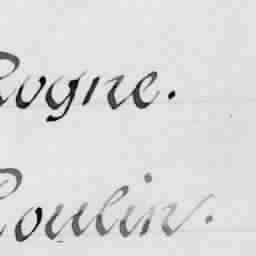 ogne.
oulin.